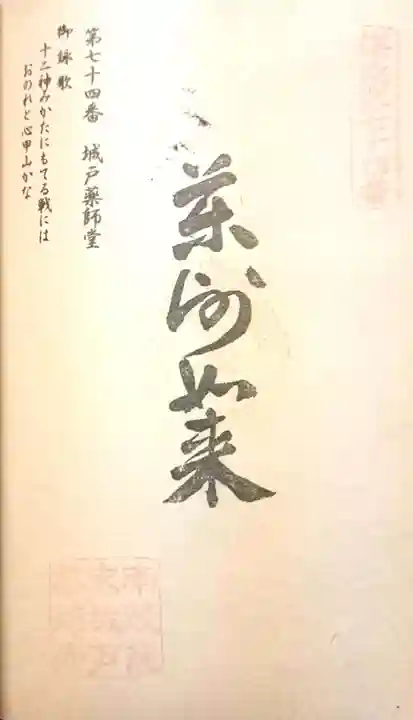 薬師如来
第七十四番　城戸薬師堂
御詠歌
十二神みかたにもてる戦には
おのれと心甲山かな